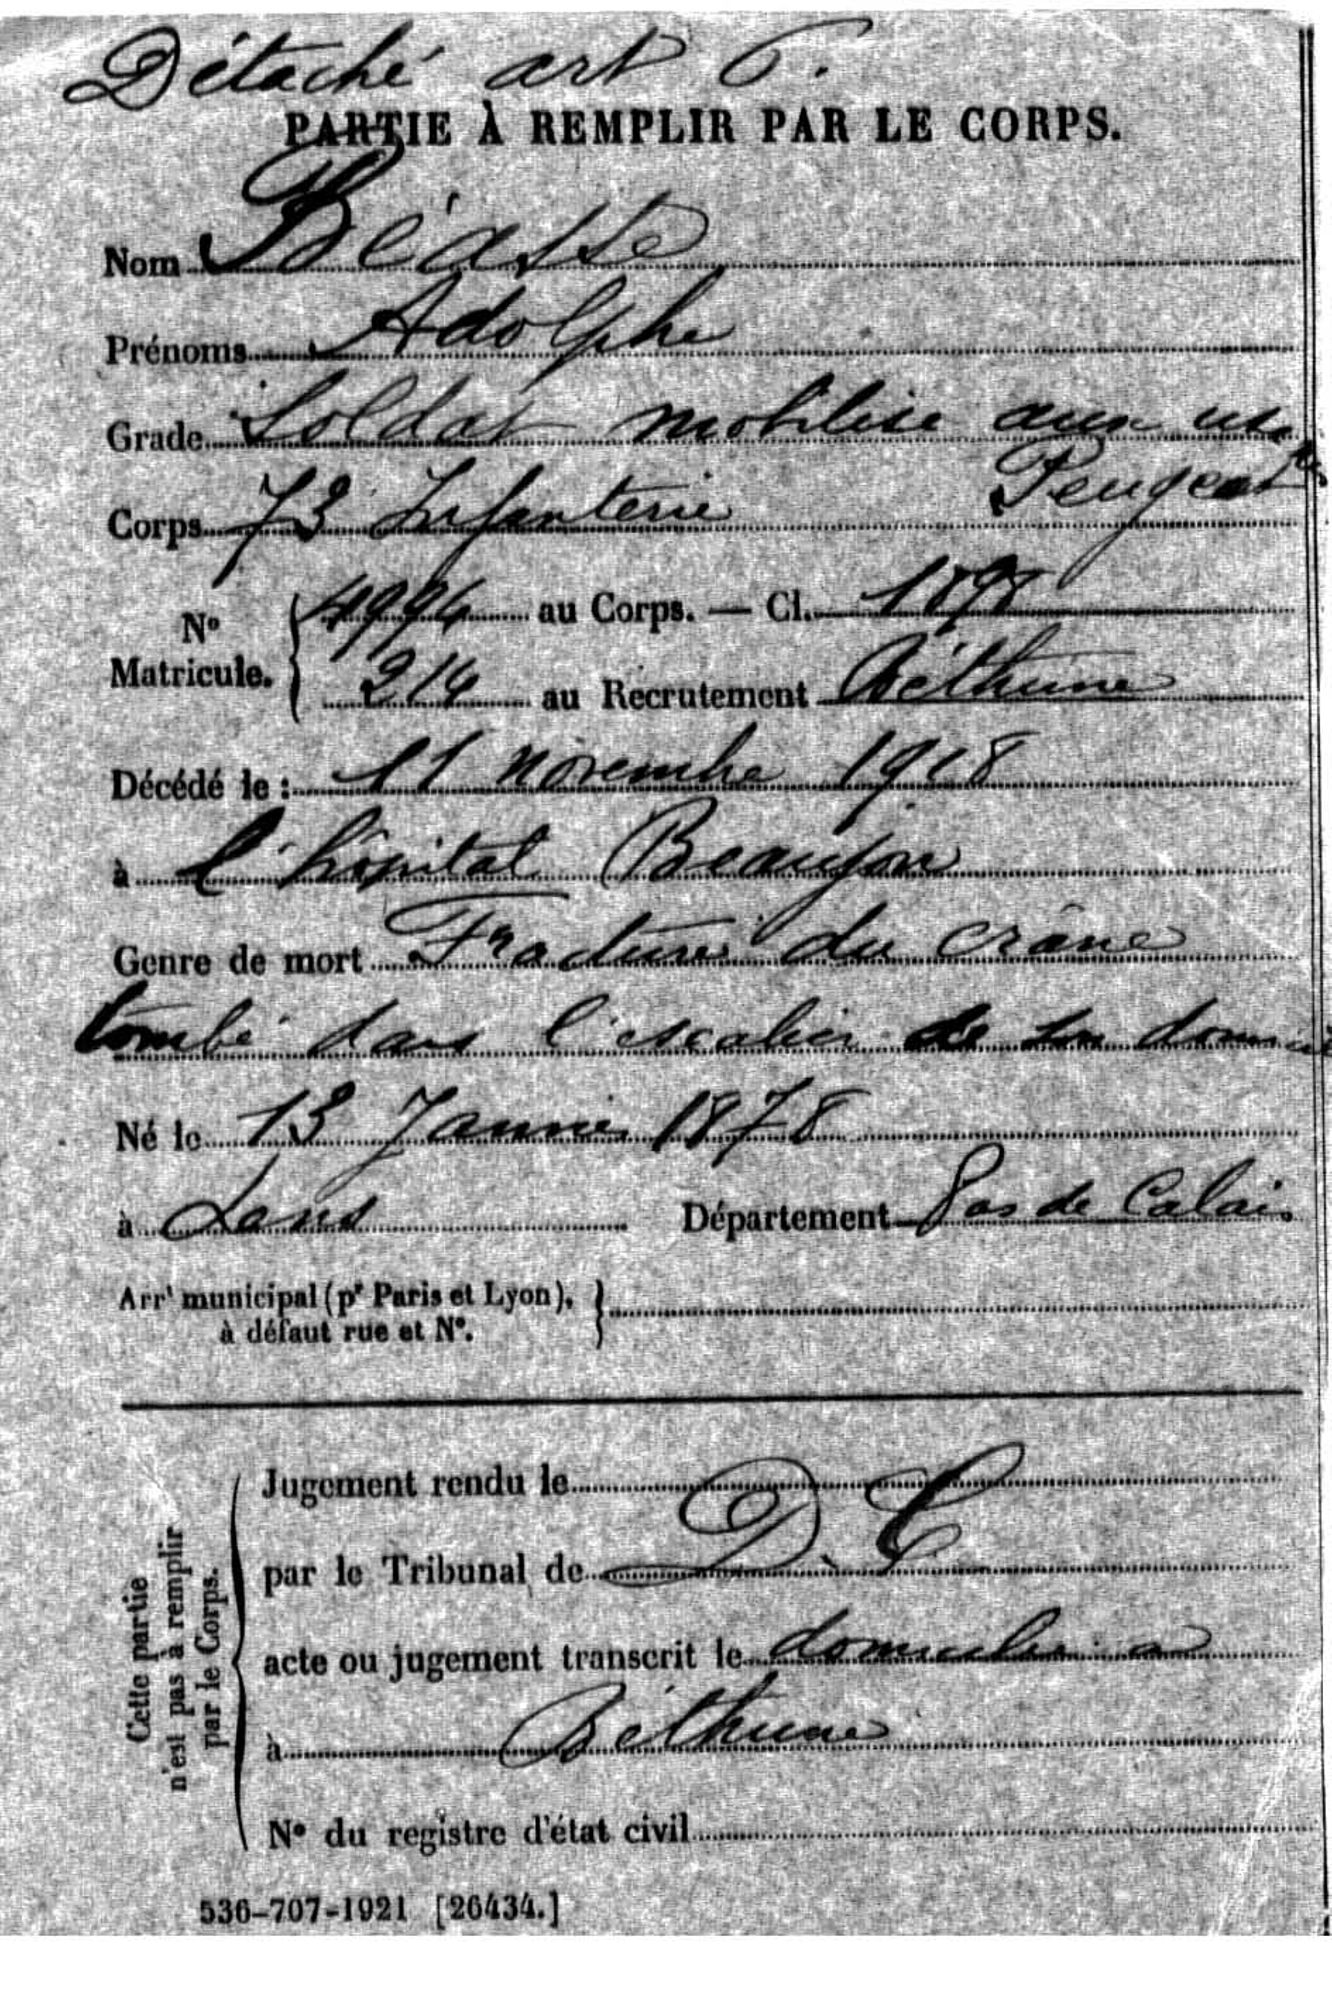 Détaché art 6.
PARTIE À REMPLIR PAR LE CORPS.
Nom Béasse
Prénoms Adolphe
Grade Soldat mobilisé aux usines
Peugeot
Corps 73 Infanterie
N° Matricule. 4994 au Corps. — Cl. 1898
214 au Recrutement Béthune
Décédé le : 11 novembre 1918
à l'hôpital Beaujon
Genre de mort Fracture du crâne
tombé dans l'escalier de son domicile
Né le 13 Janvier 1878
à Lens Département Pas de Calais
Arrt municipal (pr Paris et Lyon),
à défaut rue et N°.
Cette partie
n'est pas à remplir
par le Corps.
Jugement rendu le
par le Tribunal de D.C
acte ou jugement transcrit le domicilié a
à Béthune
N° du registre d'état civil
536-707-1921 [26434.]